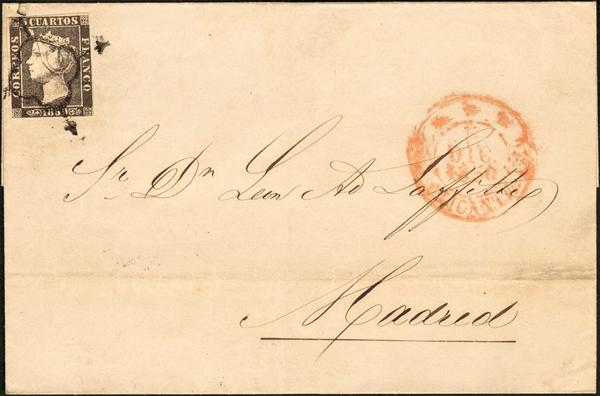 6 CUARTOS
CORREOS
FRANCO
1850
DIC.
ALICANTE
Sr. Dn Leon Ad Laffitte
Madrid